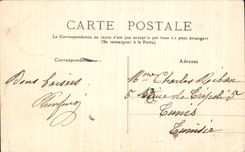 CARTE POSTALE
La Correspondance au recto n'est pas acceptée par tous les pays étrangers
(Se renseigner à la Poste)
Correspondance
Bons baisers
Mme Charles
5 Rue de Tripoli 5
Tunis
Tunisie